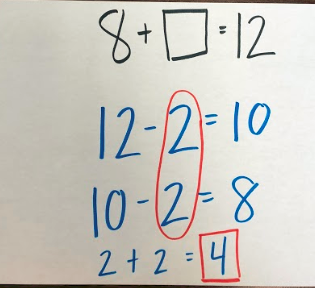 8 + □ = 12
12 - 2 = 10
10 - 2 = 8
2 + 2 = 4